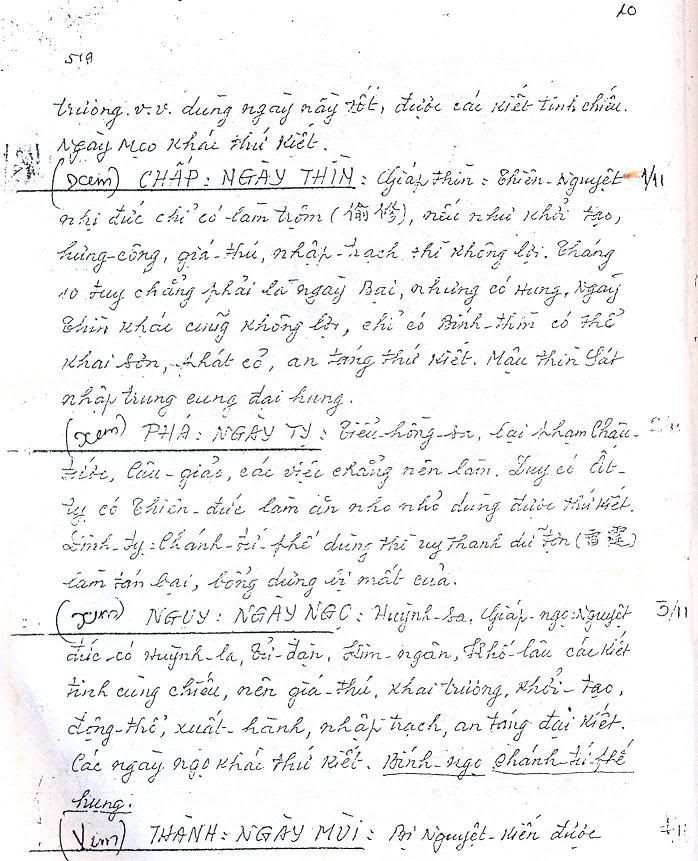 10
519
trương.v.v. dùng ngày nầy tốt, được các kiết tinh chiếu.
Ngày Mẹo khác thứ kiết.
(xem) CHẤP: NGÀY THÌN: Giáp thìn: Thiên-Nguyệt 1/11
nhị đức chỉ có làm trộm (偷修), nếu như khởi tạo,
hưng-công, giá-thú, nhập-trạch thì không lợi. Tháng
10 tuy chẳng phải là ngày Bại, nhưng có Hung. Ngày
Thìn khác cũng không lợi, chỉ có Bính-thìn có thể
khai sơn, phát cỏ, an táng thứ kiết. Mậu thìn Sát
nhập trung cung đại hung.
(xem) PHÁ: NGÀY TỴ: Tiểu-hồng-sa, lại phạm Châu- 2/11
tước, Câu-giảo, các việc chẳng nên làm. Duy có Ất-
tỵ có Thiên-đức làm ăn nho nhỏ dùng được thứ kiết.
Đinh-tỵ: Chánh-tứ-phế dùng thì uy thanh dữ tợn (雷霆)
làm tán bại, bỗng dưng bị mất của.
(xem) NGUY: NGÀY NGỌ: Huỳnh-sa, Giáp-ngọ: Nguyệt 3/11
đức có Huỳnh-la, Tử-đàn, Kim-ngân, Khố-lâu các kiết
tinh cùng chiếu, nên giá-thú, khai trương, khởi-tạo,
động-thổ, xuất-hành, nhập trạch, an táng đại kiết.
Các ngày ngọ khác thứ kiết. Bính-ngọ Chánh-tứ-phế
hung.
(Xem) THÀNH: NGÀY MÙI: Bị Nguyệt-Kiến được 4/11